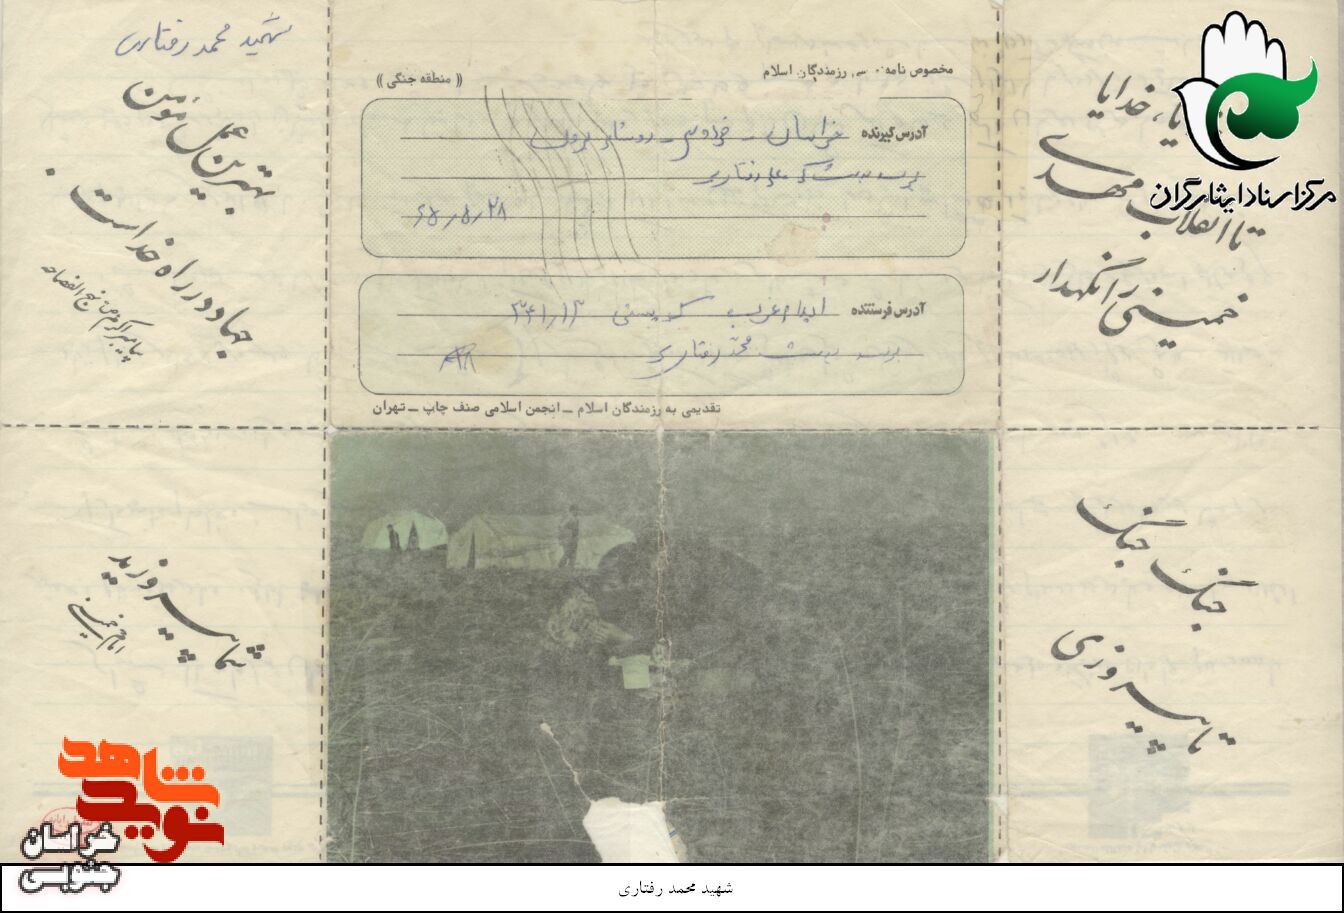 شهید محمد رفتاری
مخصوص نامه رزمندگان اسلام
(( منطقه جنگی ))
آدرس گیرنده
خراسان - فردوس - روستای
برسد بدست علی رفتاری
۶۵/۵/۲۸
آدرس فرستنده
۳۴۱/۱۲
برسد بدست محمد رفتاری
تقدیمی به رزمندگان اسلام ــ انجمن اسلامی صنف چاپ ــ تهران
خدایا، خدایا
تا انقلاب مهدی
خمینی را نگهدار
بهترین عمل مؤمن
جهاد در راه خداست.
پیامبر اکرم ص نهج الفصاحه
جنگ جنگ
تا پیروزی
شما پیروزید
امام خمینی
مرکز اسناد ایثارگران
نوید شاهد
خراسان جنوبی
شهید محمد رفتاری